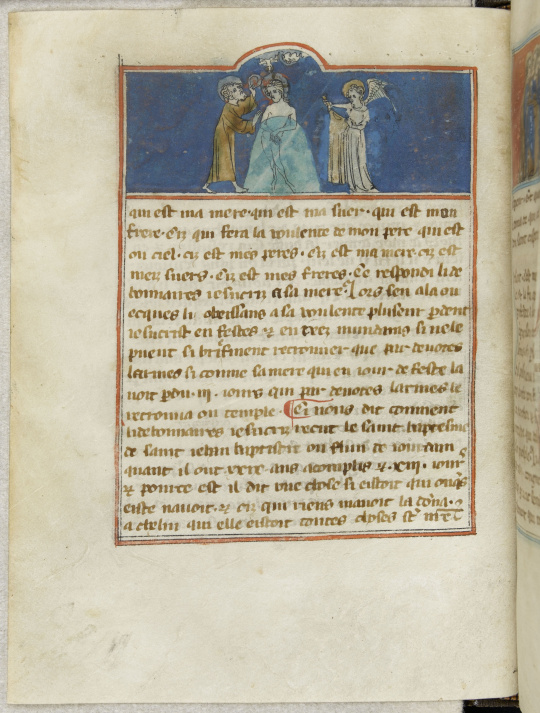 qui est ma mere · qui est ma suer · qui est mon
frere · Cilz qui fera la voulente de mon pere qui est
ou ciel · cilz est mes peres · cilz est ma mere · cilz est
mez suers · Cilz est mes freres · Ce respondi li de
bonnaires iesucriz a sa mere · Lors sen ala ou
ecques li obeissans a sa voulente pluiseurs pdent
iesucrist en festes & en
puent si briefment retrouuer que par deuotes
larmes si comme sa mere qui en iour de feste la
uoit pdu · iii · iours qui par deuotes larmes le
retrouua ou temple · Ci nous dit comment
li debonnaires iesucriz recut le saint baptesme
de saint iehan baptistre ou flun de iourdain
quant il out xxix ans acomplis & · xiii · iours
& pource est il dit vne chose si estoit qui onqs
este nauoit · & cilz qui riens nauoit la
a celui qui elle estoit toutes choses